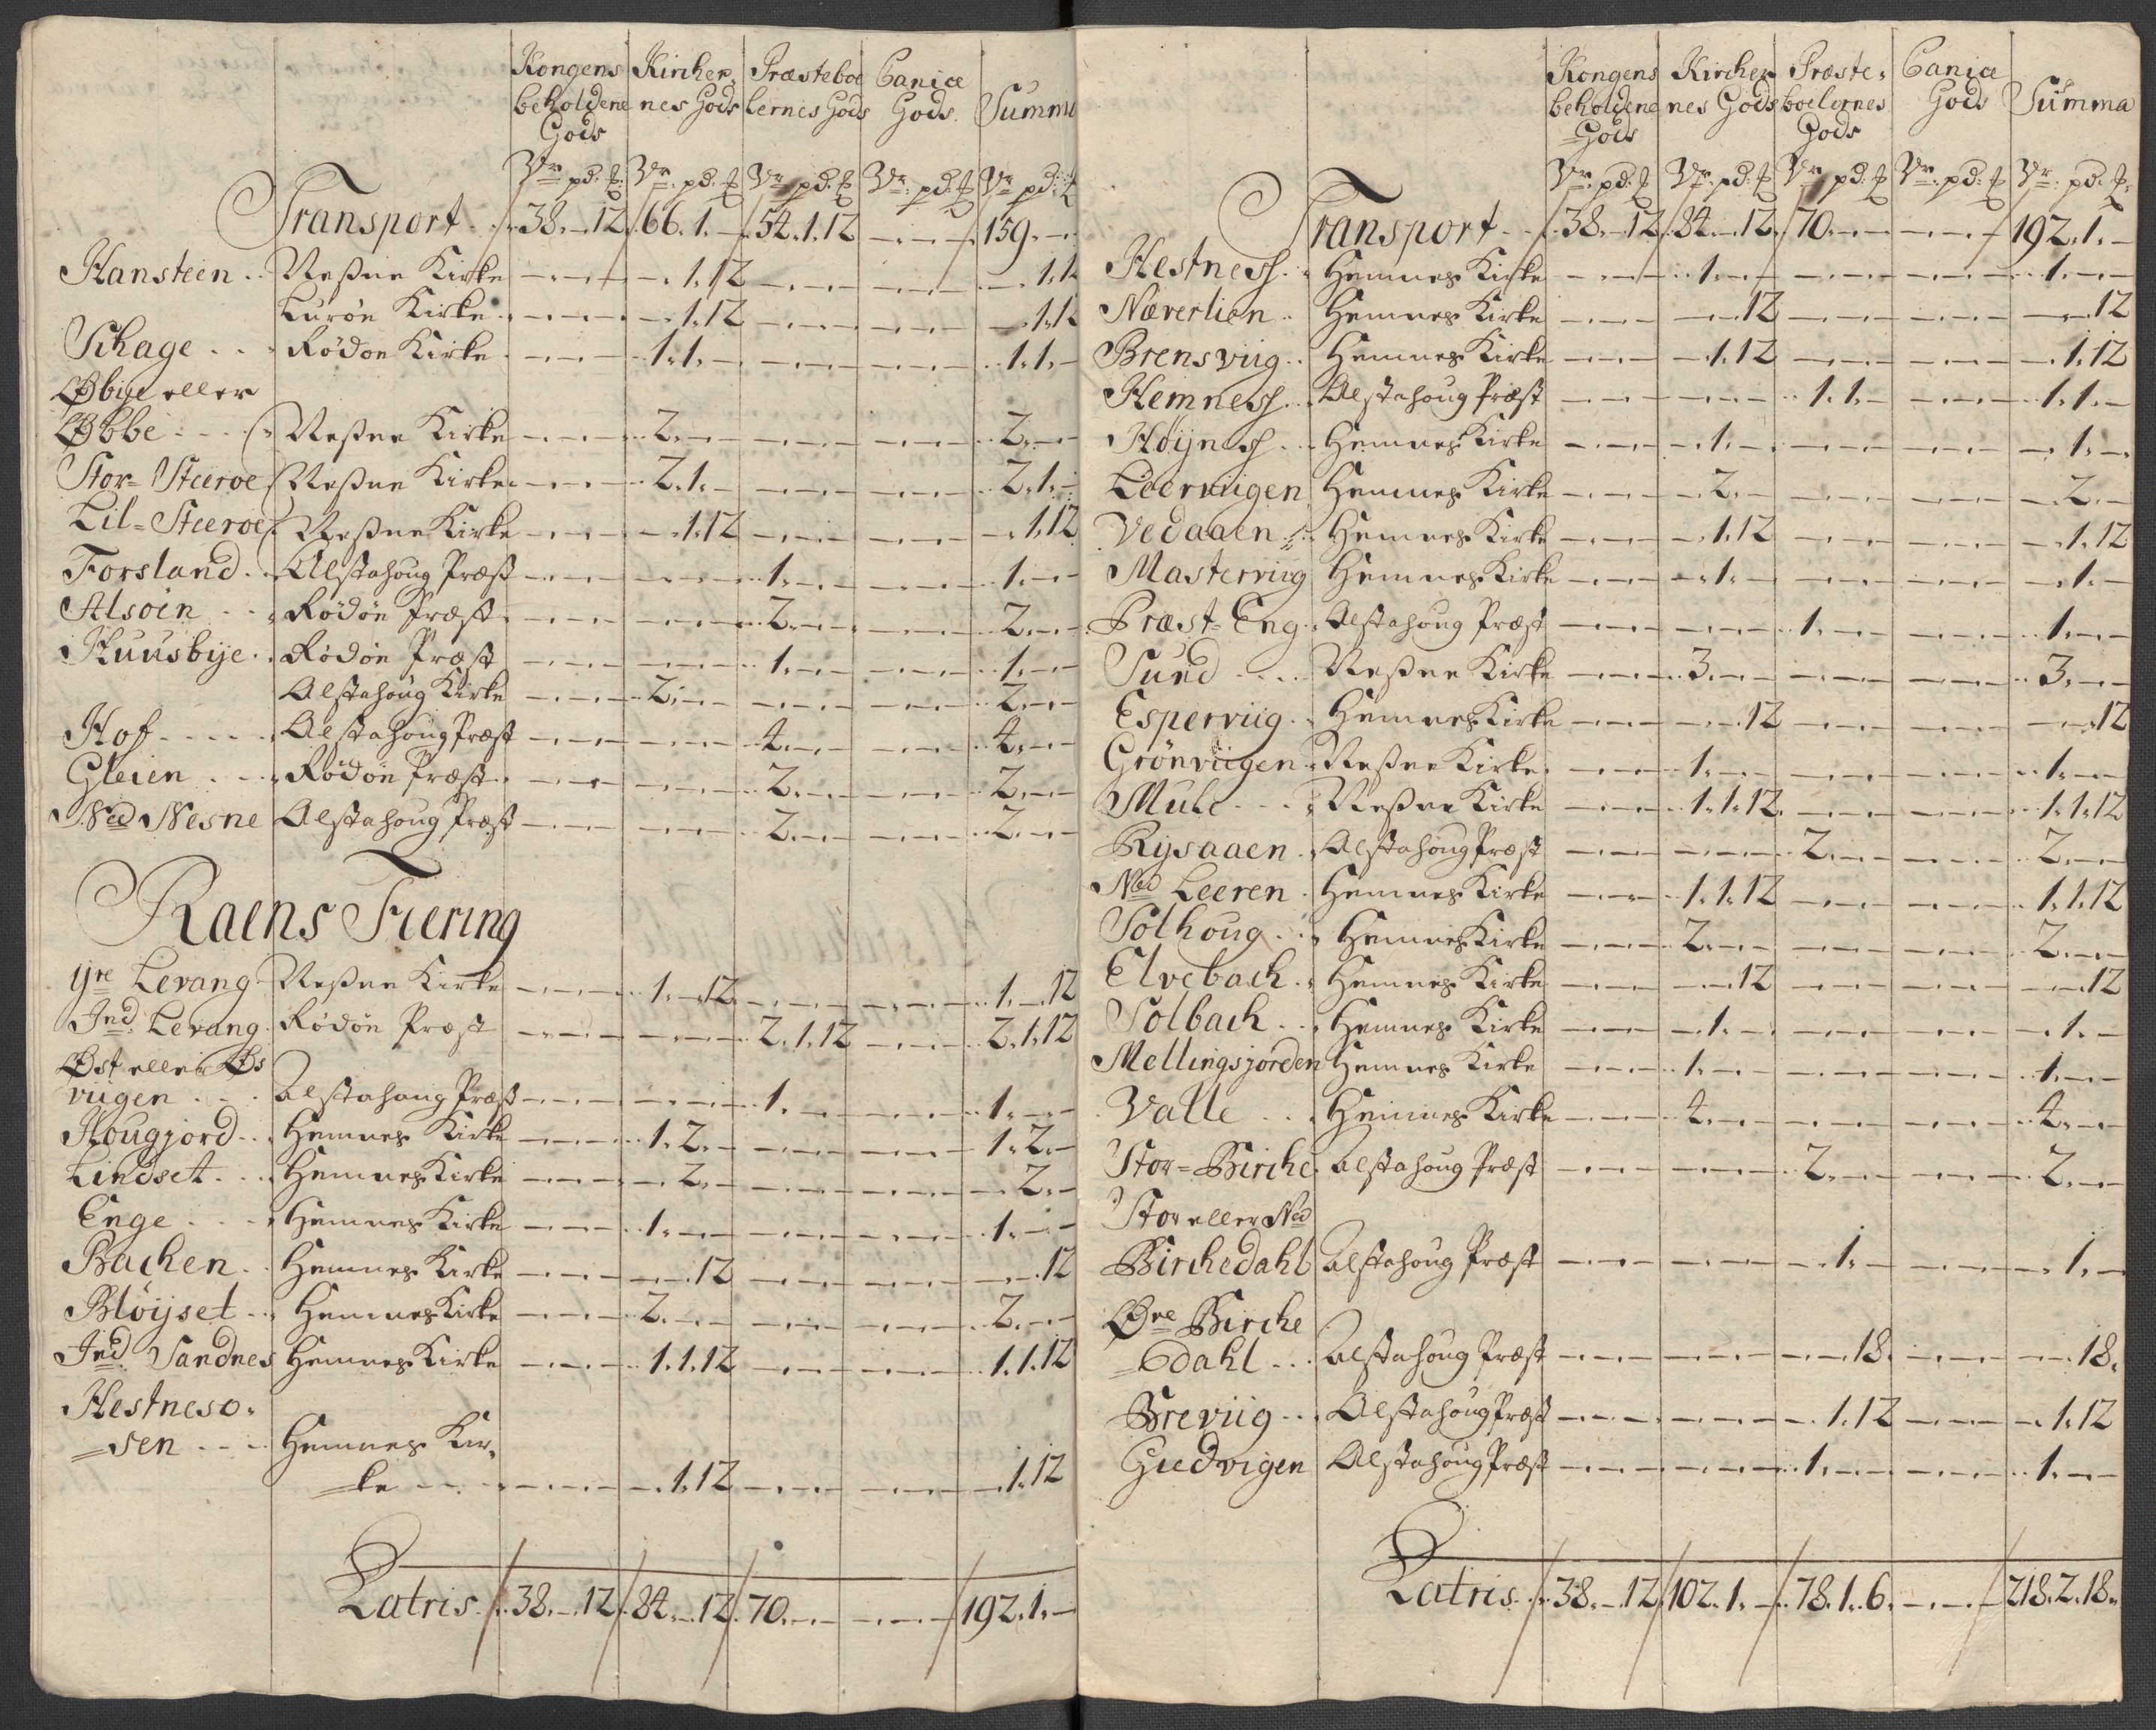 Kongens beholdene Gods | Kircher,nes Gods | Præsteboelernes Gods | Caniae Gods. | Summa
Vr. pd: | Vr. pd: | Vr. pd: | Vr. pd: | Vr. pd:
Transport. | 38.-.12 | 66.1.- | 54.1.12 | -.-.- | 159.-.-
Hansteen.. | Neßne Kirke | -.-.- | -.1.12 | -.-.- | -.-.- | -.1.12
Lurøe Kirke | -.-.- | -.1.12 | -.-.- | -.-.- | -.1.12
Schage... | Rødøe Kirke | -.-.- | 1.1.- | -.-.- | -.-.- | 1.1.-
Øbÿe eller
Øbbe | Neßne Kirke | -.-.- | 2.-.- | -.-.- | -.-.- | 2.-.-
Stor- Steeroe | Neßne Kirke | -.-.- | 2.1.- | -.-.- | -.-.- | 2.1.-
Lil-Steeroe | Neßne Kirke | -.-.- | -.1.12 | -.-.- | -.-.- | -.1.12
Forsland | Alstahoug Præst | -.-.- | -.-.- | 1.-.- | -.-.- | 1.-.-
Alsøen | Rødøe Præst | -.-.- | -.-.- | 2.-.- | -.-.- | 2.-.-
Huusbÿe | Rødøe Præst | -.-.- | -.-.- | 1.-.- | -.-.- | 1.-.-
Alstahoug Kirke | -.-.- | 2.-.- | -.-.- | -.-.- | 2.-.-
Hof | Alstahoug Præst | -.-.- | -.-.- | 4.-.- | -.-.- | 4.-.-
Gleien | Rødøe Præst | -.-.- | -.-.- | 2.-.- | -.-.- | 2.-.-
Ned Nesne | Alstahoug Præst | -.-.- | -.-.- | 2.-.- | -.-.- | 2.-.-
Raens Fiering
ÿre Levang | Neßne Kirke | -.-.- | 1.-.12 | -.-.- | -.-.- | 1.-.12
Ind Levang | Rødøe Præst | -.-.- | -.-.- | 2.1.12 | -.-.- | 2.1.12
Øst eller Øs
viigen | Alstahoug Præst | -.-.- | -.-.- | 1.-.- | -.-.- | 1.-.-
Hougjord | Hemnes Kirke | -.-.- | 1.2.- | -.-.- | -.-.- | 1.2.-
Lindset | Hemnes Kirke | -.-.- | -.2.- | -.-.- | -.-.- | -.2.-
Enge | Hemnes Kirke | -.-.- | 1.-.- | -.-.- | -.-.- | 1.-.-
Bachen | Hemnes Kirke | -.-.- | -.-.12 | -.-.- | -.-.- | -.-.12
Bløÿset | Hemnes Kirke | -.-.- | 2.-.- | -.-.- | -.-.- | 2.-.-
Ind Sandnes | Hemnes Kirke | -.-.- | 1.1.12 | -.-.- | -.-.- | 1.1.12
Hestneso-
-sen | Hemnes Kir-
ke | -.-.- | -.1.12 | -.-.- | -.-.- | -.1.12
Latris. | 38.-.12 | 84.-.12 | 70.-.- | -.-.- | 192.1.-
Kongens beholdene Gods | Kirchernes Gods | Præste-boelernes Gods | Caniae Gods | Summa
Vr. pd: | Vr. pd: | Vr. pd: | Vr. pd: | Vr. pd:
Transport | 38.-.12 | 84.-.12 | 70.-.- | -.-.- | 192.1.-
Hestness | Hemnes Kirke | -.-.- | -.1.- | -.-.- | -.-.- | -.1.-
Næverlien | Hemnes Kirke | -.-.- | -.-.12 | -.-.- | -.-.- | -.-.12
Brensviig | Hemnes Kirke | -.-.- | -.1.12 | -.-.- | -.-.- | -.1.12
Hemness | Alstahoug Præst | -.-.- | -.-.- | 1.1.- | -.-.- | 1.1.-
Høÿness | Hemnes Kirke | -.-.- | -.1.- | -.-.- | -.-.- | -.1.-
Leerviigen | Hemnes Kirke | -.-.- | -.2.- | -.-.- | -.-.- | -.2.-
Vedaaen | Hemnes Kirke | -.-.- | -.1.12 | -.-.- | -.-.- | -.1.12
Masterviig | Hemnes Kirke | -.-.- | -.1.- | -.-.- | -.-.- | -.1.-
Præst-Eng | Alstahoug Præst | -.-.- | -.-.- | 1.-.- | -.-.- | 1.-.-
Sund | Neßne Kirke | -.-.- | 3.-.- | -.-.- | -.-.- | 3.-.-
Esperviig | Hemnes Kirke | -.-.- | -.-.12 | -.-.- | -.-.- | -.-.12
Grønviigen | Neßne Kirke | -.-.- | 1.-.- | -.-.- | -.-.- | 1.-.-
Mule | Neßne Kirke | -.-.- | 1.1.12 | -.-.- | -.-.- | 1.1.12
Rÿsaaen | Alstahoug Præst | -.-.- | -.-.- | 2.-.- | -.-.- | 2.-.-
Ned Leeren | Hemnes Kirke | -.-.- | 1.1.12 | -.-.- | -.-.- | 1.1.12
Solhoug | Hemnes Kirke | -.-.- | 2.-.- | -.-.- | -.-.- | 2.-.-
Elvebach | Hemnes Kirke | -.-.- | -.-.12 | -.-.- | -.-.- | -.-.12
Solbach | Hemnes Kirke | -.-.- | -.1.- | -.-.- | -.-.- | -.1.-
Mellingsjorden | Hemnes Kirke | -.-.- | 1.-.- | -.-.- | -.-.- | 1.-.-
Valle | Hemnes Kirke | -.-.- | 4.-.- | -.-.- | -.-.- | 4.-.-
Stor-Birche | Alstahoug Præst | -.-.- | -.-.- | 2.-.- | -.-.- | 2.-.-
Stor eller Ned
Birchedahl | Alstahoug Præst | -.-.- | -.-.- | -.1.- | -.-.- | -.1.-
Øre Birche
-dahl | Alstahoug Præst | -.-.- | -.-.- | -.-.18. | -.-.- | -.-.18.
Breviig | Alstahoug Præst | -.-.- | -.-.- | -.1.12 | -.-.- | -.1.12
Giedvigen | Alstahoug Præst | -.-.- | -.-.- | 1.-.- | -.-.- | 1.-.-
Latris. | 38.-.12 | 102.1.- | 78.1.6. | -.-.- | 218.2.18.